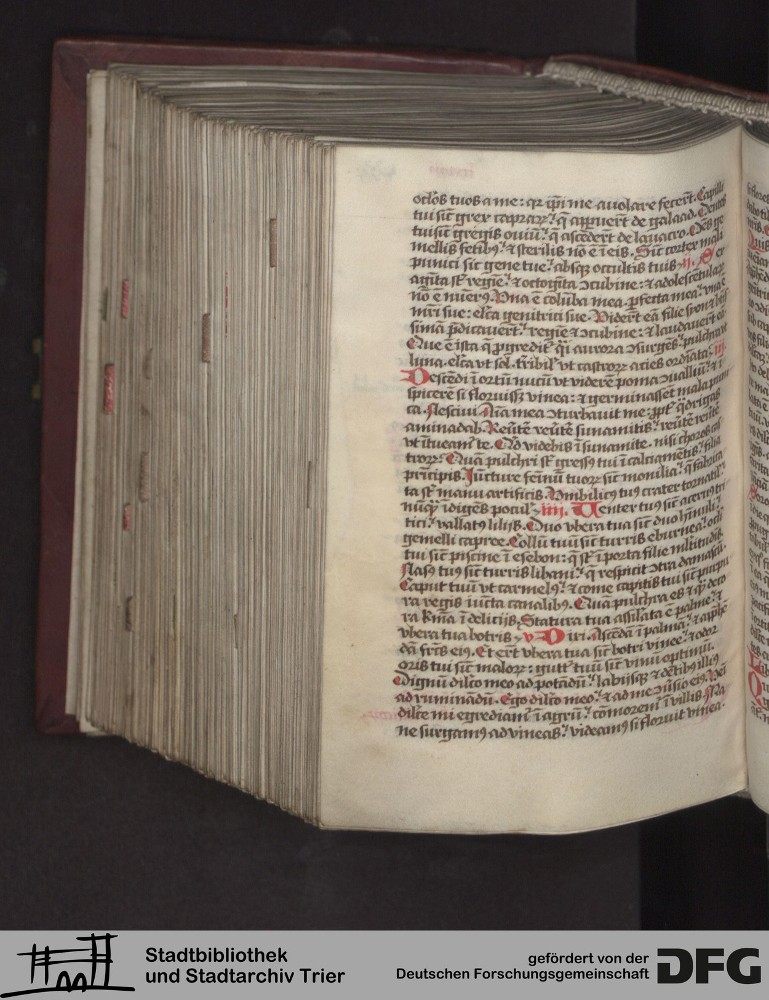 oclōs tuos a me: qr ip̄i me auolare fecer̄t. Capilli
tui sic̄ grex caprarꝝ: q̄ apparuer̄t de galaad. Dentes
tui sic̄ gregis ouiū: q̄ ascēder̄t de lauacro. Oēs ge
mellis fetibꝯ: ⁊ sterilis nō ē ī eis. Sic̄ cortex mali
punici sic̄ gene tue: absqꝫ occultis tuis. ij. Sex
aginta st̄ regīe: ⁊ octogīta ɔcubine: ⁊ adolescētulaꝝ
nō ē nūerꝯ. Vna ē colūba mea. ꝑfecta mea: vna ē
mr̄i sue: elc̄a genitrici sue. Viderūt eā filie syon ⁊ btīs
simā p̄dicauer̄t: regīe ⁊ ɔcubine: ⁊ laudauer̄t eā
Que ē ista q̄ ꝓgredit̄ q̄si aurora ɔsurgēs: pulchra ut
luna. elc̄a vt sol. tr̄ibil̄ vt castrorꝝ acies ordīata. iij.
Descēdi ī ortū nucū vt viderē poma ɔuallīū: ⁊ ī
spicerē si floruiss̄ vinea: ⁊ germinassēt mala puni
ca. Nesciui. Aīa mea ɔturbauit me: ꝓpt̄ q̄drigas
aminadab. Reūte reūte sunamitis: reūte reūte
vt ītueam̄ te. Qd̄ videbis ī sunamite. nisi choros cas
trorꝝ: Quā pulchri st̄ gressꝯ tui ī calciamētis: filia
prīcipis. Iūcture femīnū tuorꝝ sic̄ monilia: q̄ fabrica
ta st̄ manu artificis. Vmbilicꝯ tuꝯ crater tornatil̄:
nūq̄ꝫ īdigēs pocul̄. iiij. Venter tuꝯ sic̄ aceruꝯ tri
tici: vallatꝯ lilijs. Duo vbera tua sic̄ duo hīnuli:
gemelli capree. Collū tuū sic̄ turris eburnea: ocl̄i
tui sic̄ piscine ī esebon: q̄ st̄ ī porta filie mltitudīs.
Nasꝯ tuꝯ sic̄ turris libani: q̄ respicit ɔtra damascū.
Caput tuū vt carmelꝯ: ⁊ come capitis tui sic̄ purpu
ra regis iūcta canalibꝯ. Quā pulchra es ⁊ q̄ꝫ deco
ra km̄a ī delicijs. Statura tua assilata ē palme: ⁊
vbera tua botris. v. Dixi. Ascēdā ī palmā: ⁊ appr̄hē
dā fr̄us eiꝯ. Et er̄t vbera tua sic̄ botri vinee: ⁊ odor
oris tui sic̄ malorꝝ: gutt̄ tuū sic̄ vinū optimū.
Dignū dilc̄o meo ad potādū: labijsqꝫ ⁊ dētibꝯ illiꝯ
ad ruminādū. Ego dilc̄o meo: ⁊ ad me ɔūsio eiꝯ. Veni
dilc̄e mi egrediam̄ ī agrū: cōmorem̄ ī villis. Ma
ne surgamꝯ ad vineas: videamꝯ si floruit vinea.
Stadtbibliothek
und Stadtarchiv Trier
gefördert von der
Deutschen Forschungsgemeinschaft
DFG